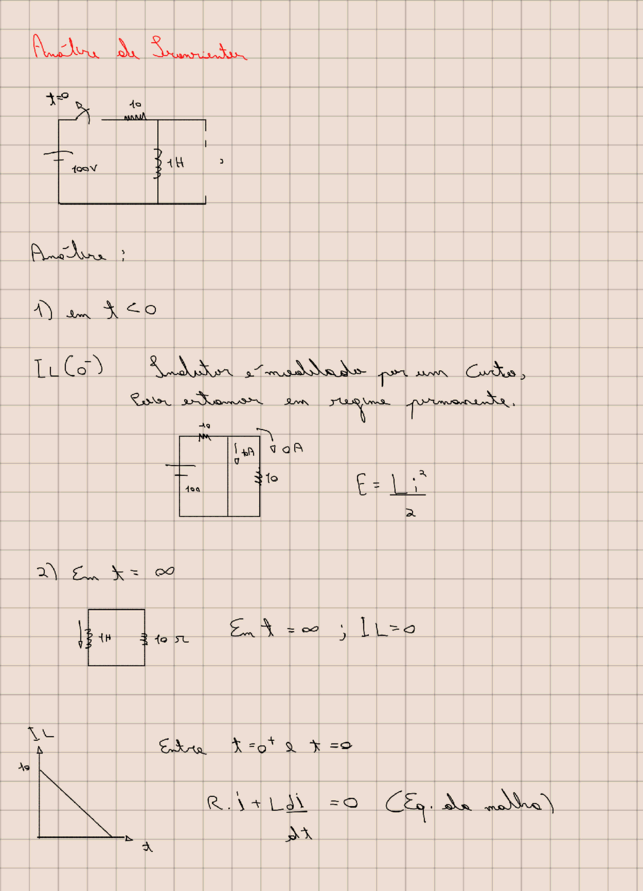 Análise de Transientes
t=0
10
100V
1H
Análise :
1) em t < 0
IL(0⁻) Indutor é modelado por um curto,
pois estamos em regime permanente.
10
10A
0A
100
10
E = Li²
2
2) Em t = ∞
1H
10 Ω
Em t = ∞ ; IL=0
IL
10
t
Entre t=0⁺ e t=∞
R.i + L di = 0 (Eq. da malha)
dt